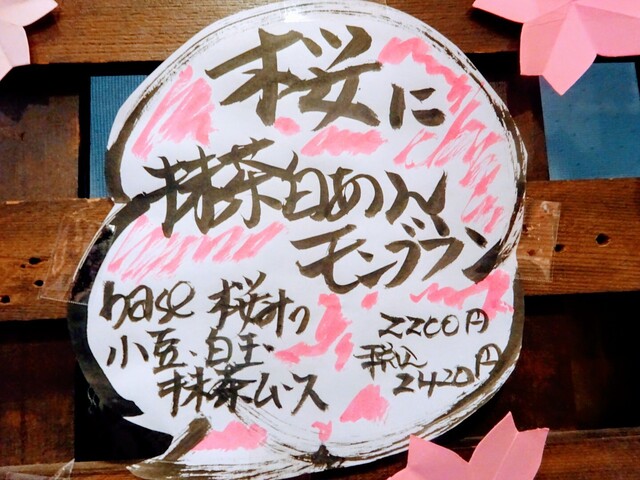 桜に
抹茶白あん
モンブラン
base 桜オレ
小豆、白玉、
抹茶ムース
2200円
税込
2420円